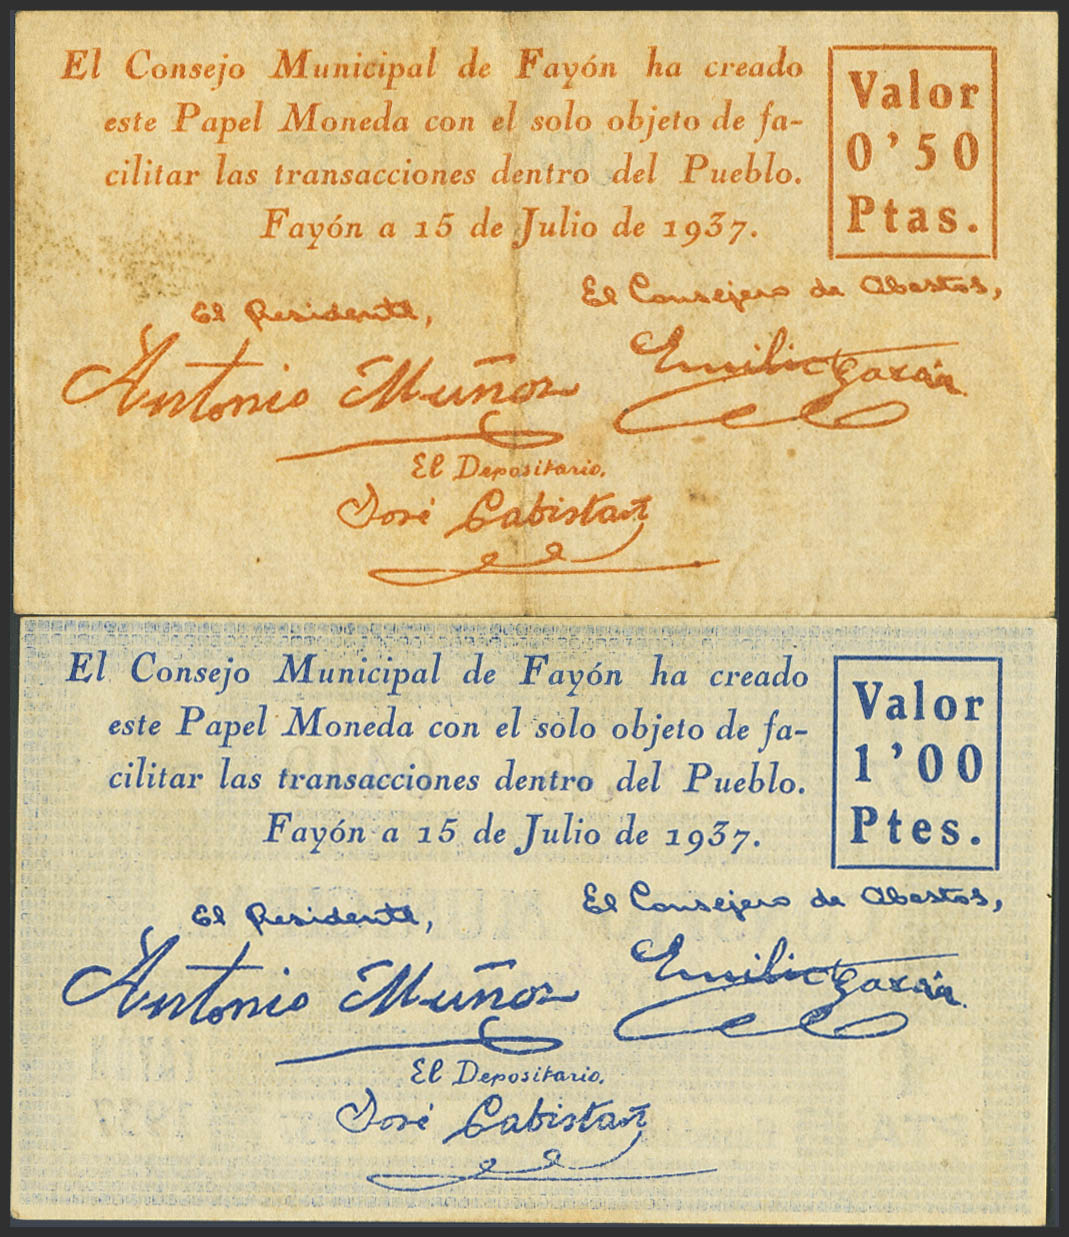 El Consejo Municipal de Fayón ha creado
este Papel Moneda con el solo objeto de fa-
cilitar las transacciones dentro del Pueblo.
Fayón a 15 de Julio de 1937.
Valor
0'50
Ptas.
El Presidente,
El Consejero de Abastos,
Antonio Muñoz
Emilio
El Depositario.
José Cabistañ
El Consejo Municipal de Fayón ha creado
este Papel Moneda con el solo objeto de fa-
cilitar las transacciones dentro del Pueblo.
Fayón a 15 de Julio de 1937.
Valor
1'00
Ptes.
El Presidente,
El Consejero de Abastos,
Antonio Muñoz
Emilio
El Depositario.
José Cabistañ